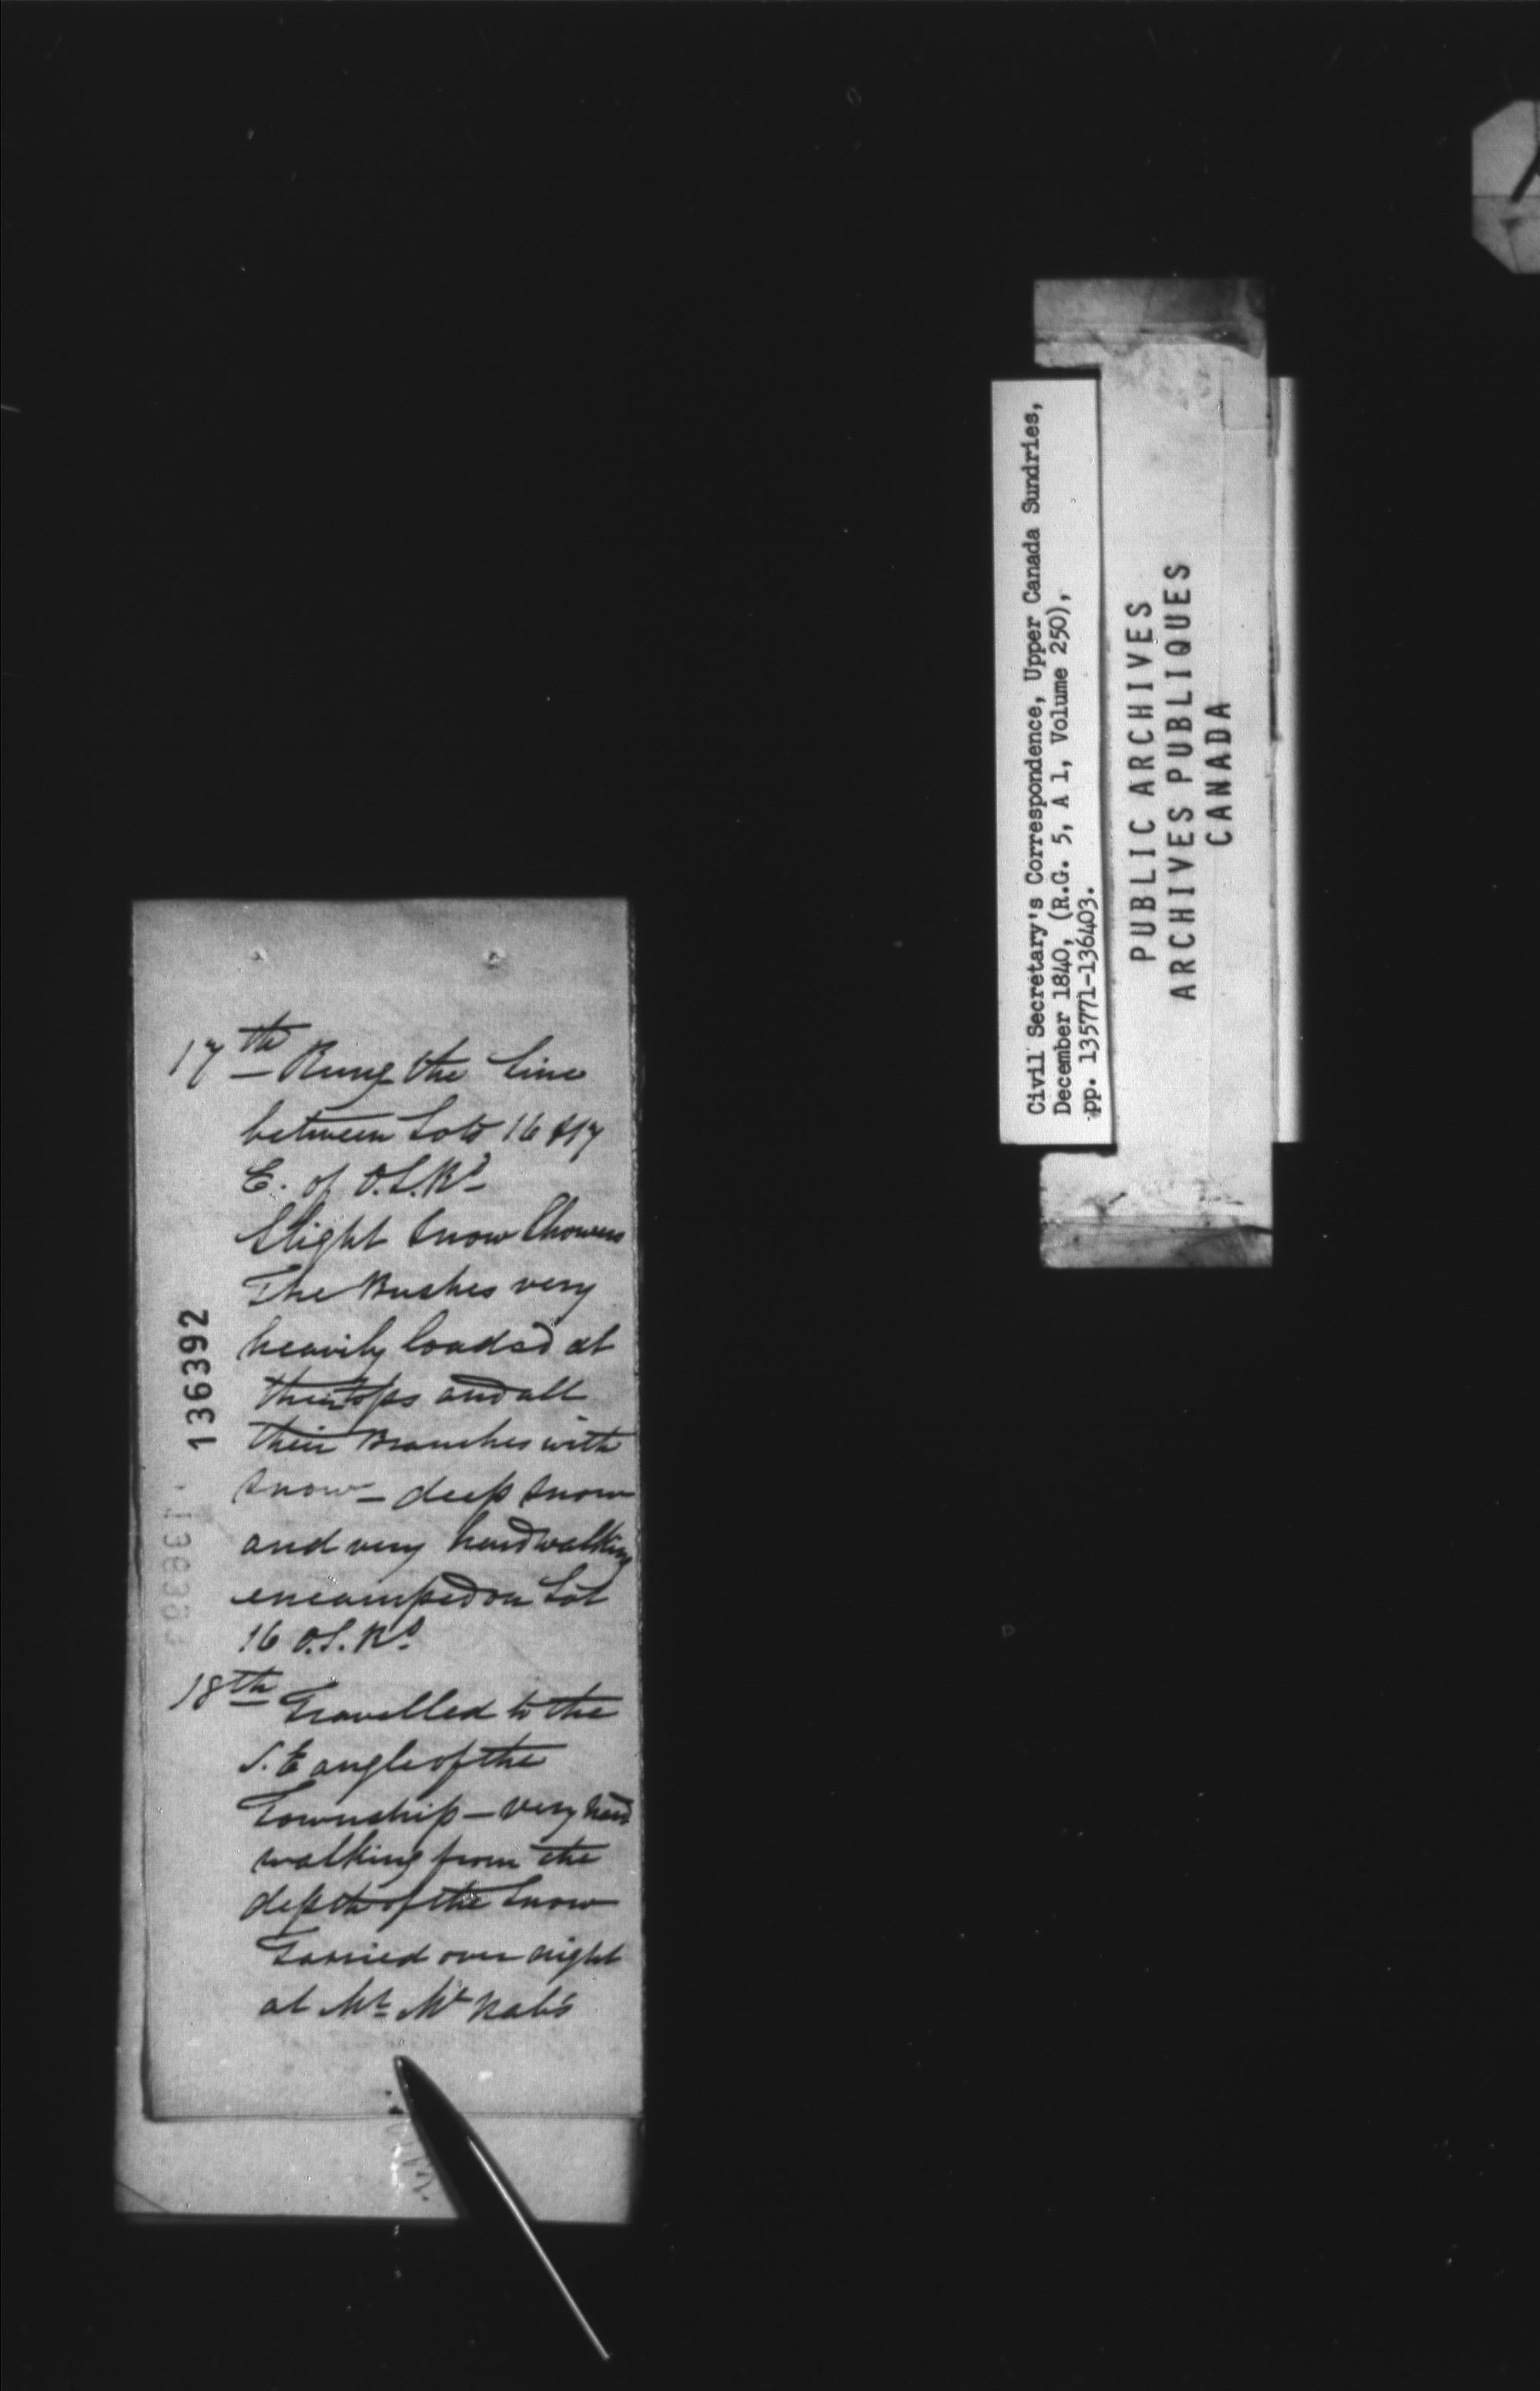 17th Rung the line
between Lots 16 & 17
E. of O.S.Rd
Slight Snow Showers
The Bushes very
heavily loaded at
their tops and all
their Branches with
snow – deep snow
and very hard walking
encamped on Lot
16 O.S.Rd
18th Travelled to the
S.E angle of the
Township – very hard
walking from the
depth of the Snow
Tarried over night
at Mr Mc Nab's
136392
Civil Secretary's Correspondence, Upper Canada Sundries,
December 1840, (R.G. 5, A 1, Volume 250),
pp. 135771-136403.
PUBLIC ARCHIVES
ARCHIVES PUBLIQUES
CANADA